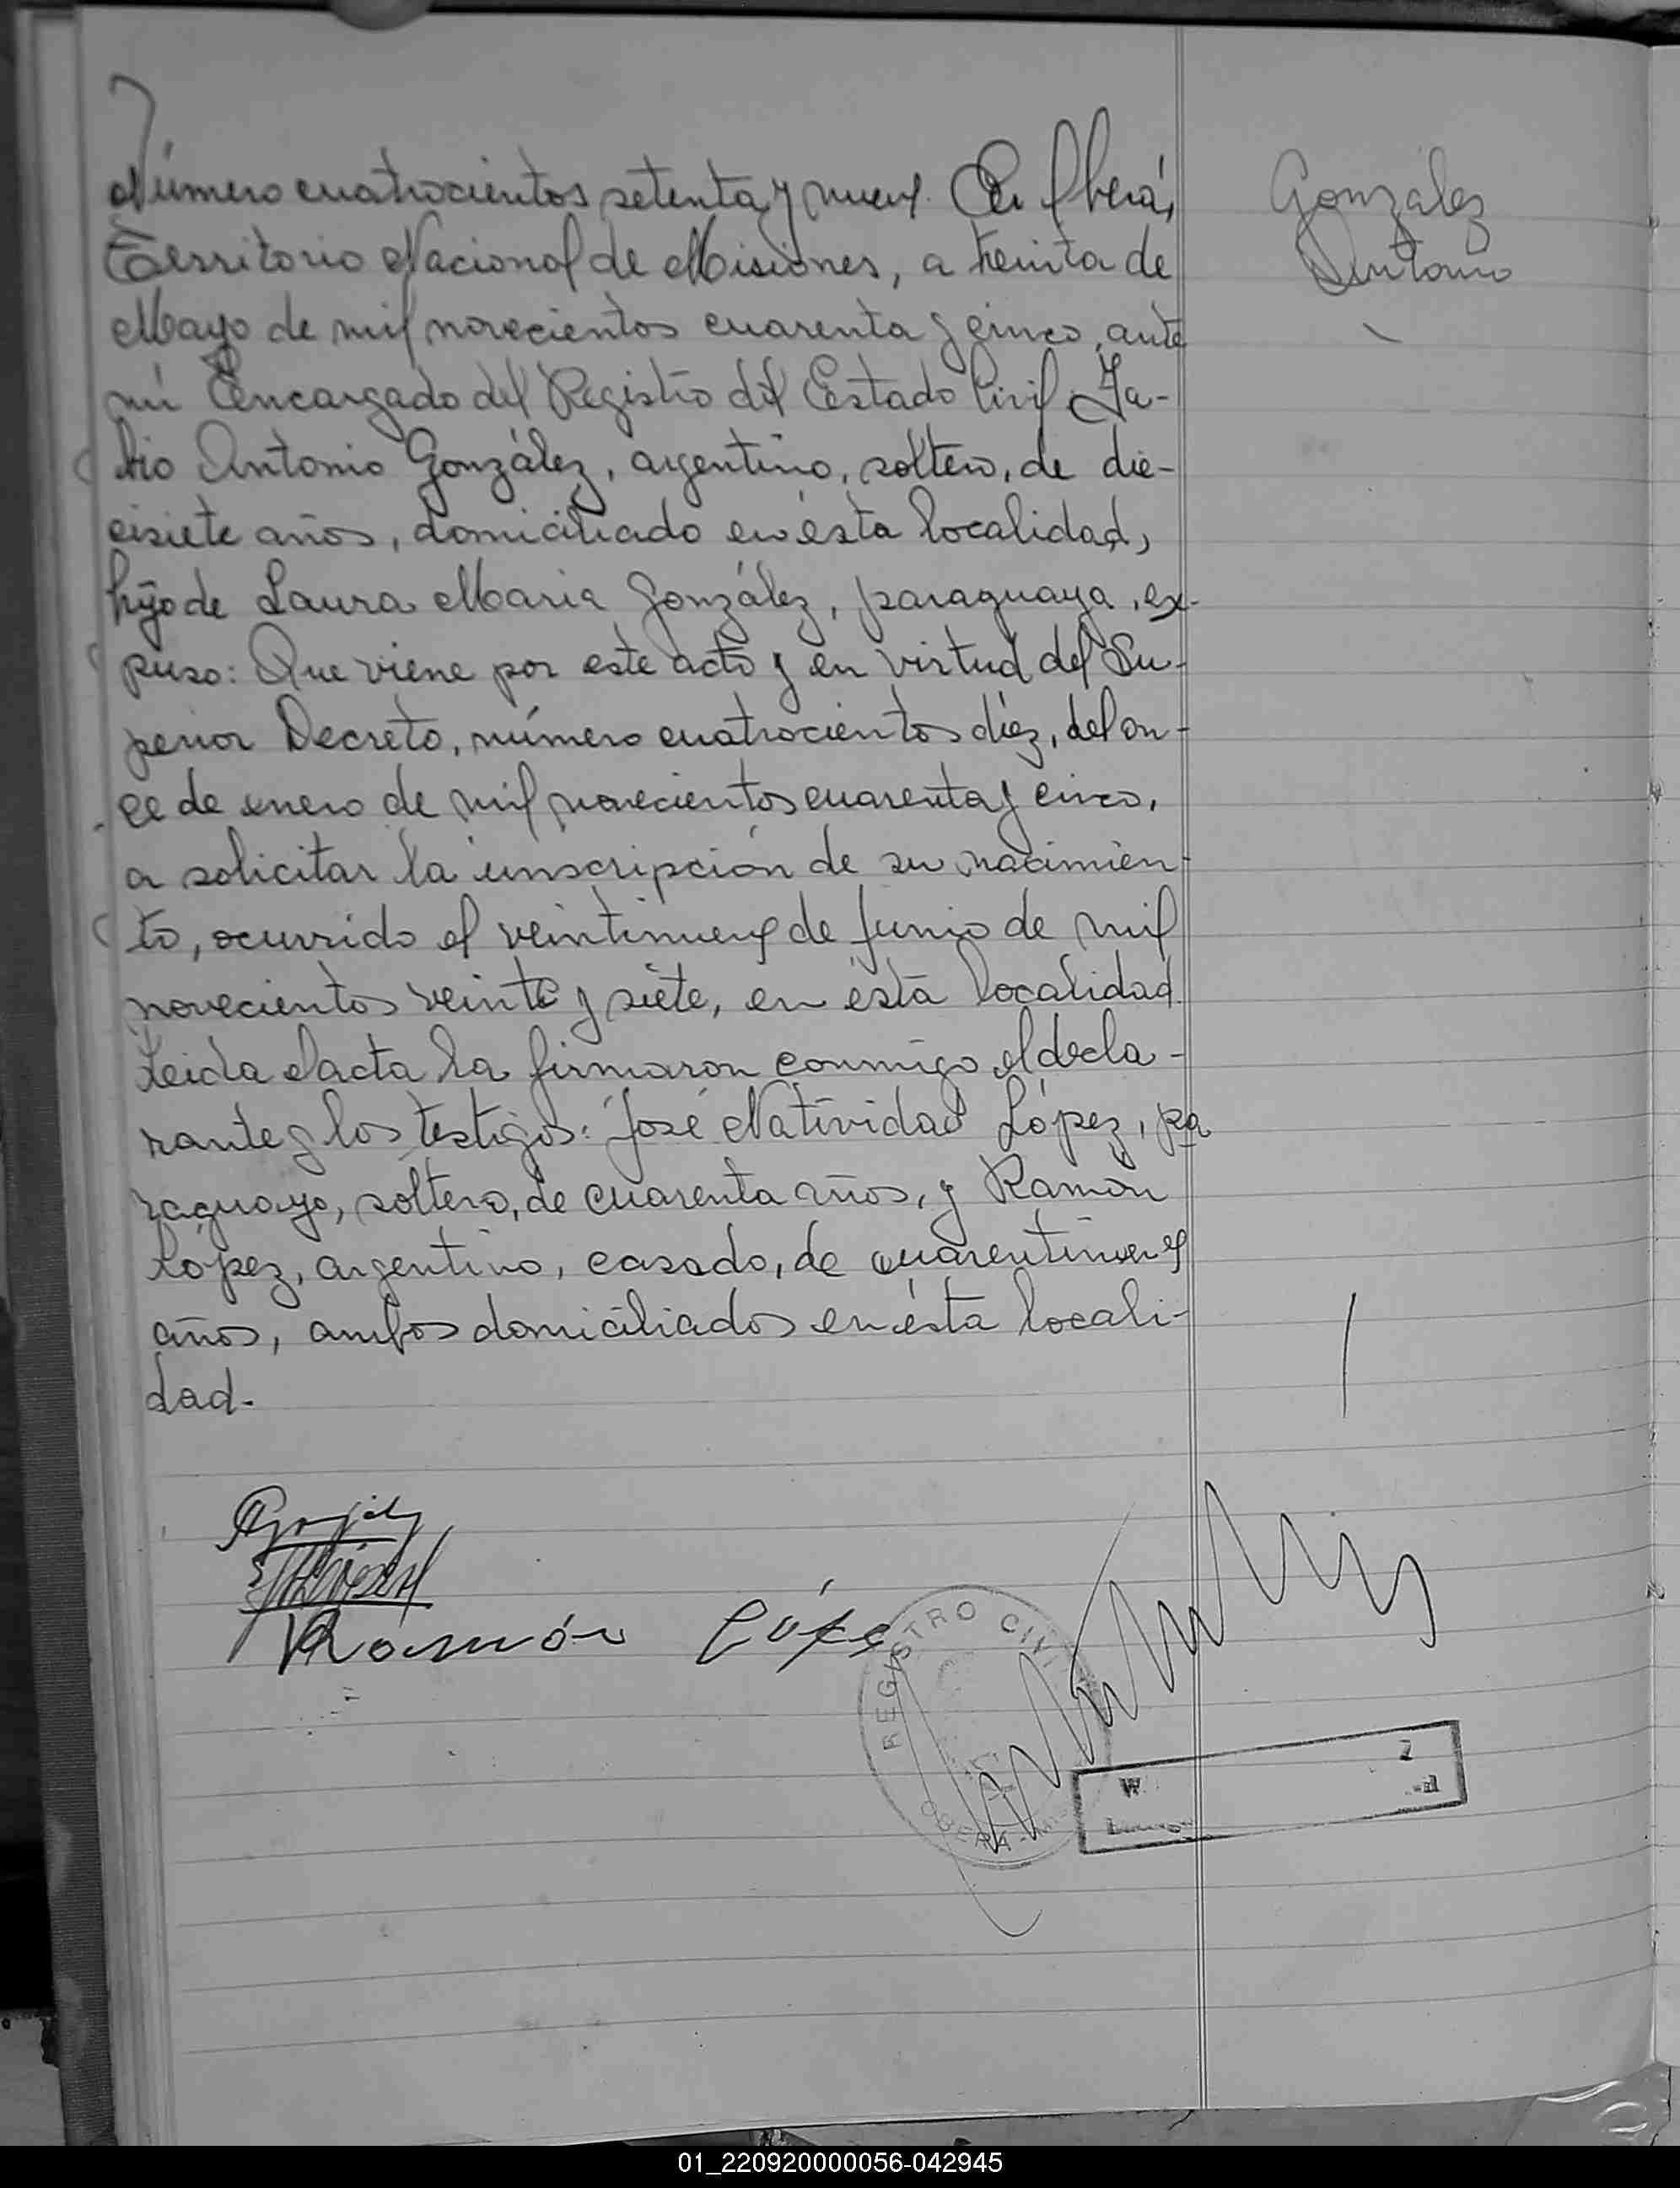 Número cuatrocientos setenta y nueve. En Oberá,
Territorio Nacional de Misiones, a treinta de
Mayo de mil novecientos cuarenta y cinco, ante
mí Encargado del Registro del Estado Civil,
Antonio González, argentino, soltero, de die-
cisiete años, domiciliado en ésta localidad,
hijo de Laura Maria González, paraguaya, ex-
puso: Que viene por este acto y en virtud del Su-
perior Decreto, número cuatrocientos diéz, del on-
ce de enero de mil novecientos cuarenta y cinco,
a solicitar la inscripción de su nacimien-
to, ocurrido el veintinueve de Junio de mil
novecientos veinte y siete, en ésta localidad.
Leida el acta la firmaron conmigo el decla-
rante y los testigos: José Natividad López, pa
raguayo, soltero, de cuarenta años, y Ramón
López, argentino, casado, de cuarentinueve
años, ambos domiciliados en ésta locali-
dad.
González
Antonio
Ramón López
REGISTRO CIVIL
OBERÁ
01_220920000056-042945